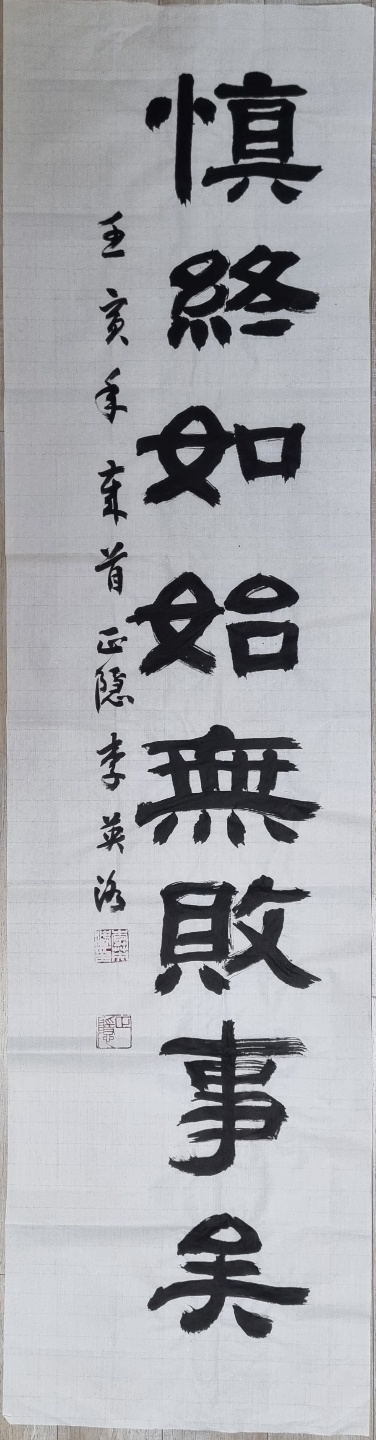 慎終如始無敗事矣
壬寅年歲首正隱李英洛